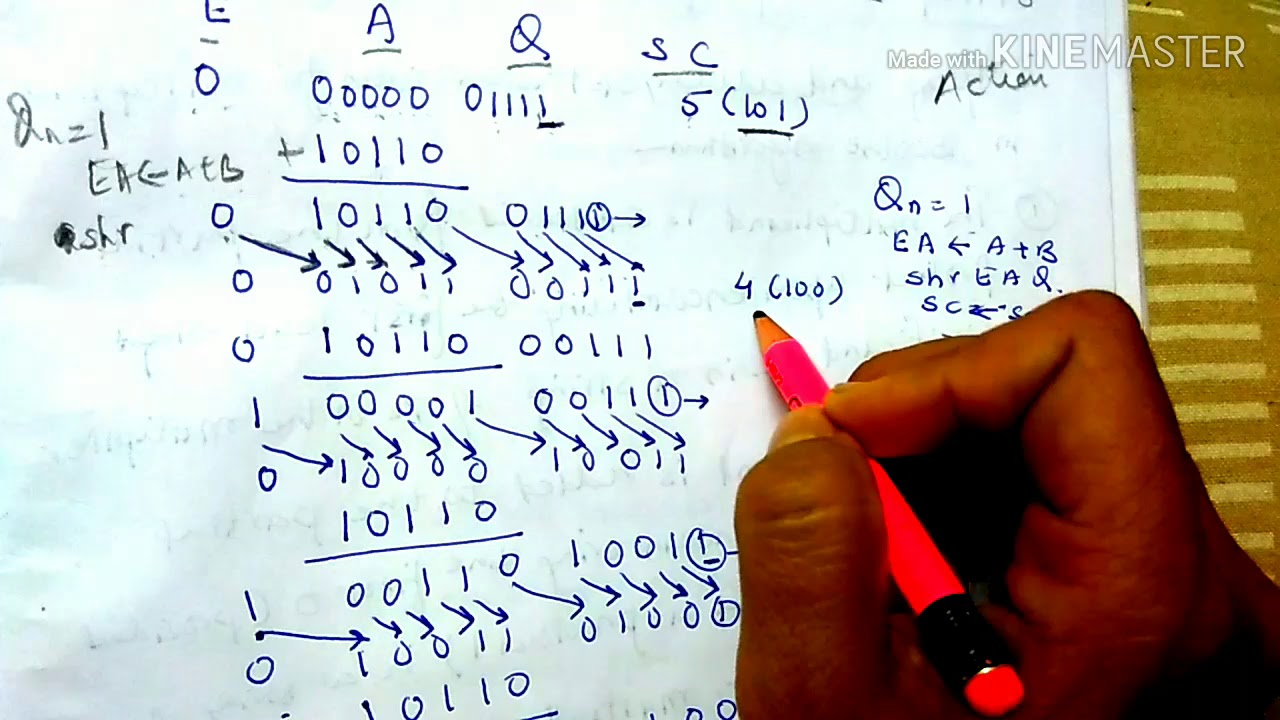 E A Q SC
Made with KINEMASTER
Action
0 00000 01111 5(101)
Qn=1
EA←A+B +10110
0 10110 01111→
shr
0 01011 00111 4(100)
Qn = 1
EA ← A+B
shr EAQ.
SC←
0 10110 00111
1 00001 00111→
0 10000 10011
10110
1 00110 10011
0 10011 01001
10110